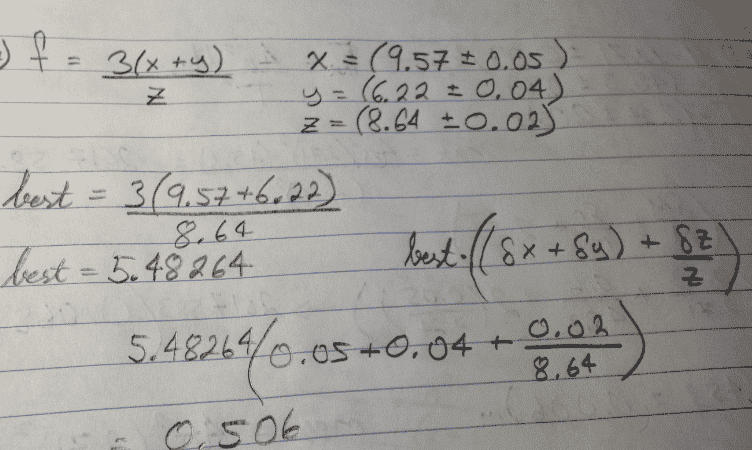 ) f = 3(x+y)/z
x = (9.57 ± 0.05)
y = (6.22 ± 0.04)
z = (8.64 ± 0.02)
best = 3(9.57+6.22)/8.64
best = 5.48264
best·((δx + δy) + δz/z)
5.48264(0.05+0.04 + 0.02/8.64)
= 0.506